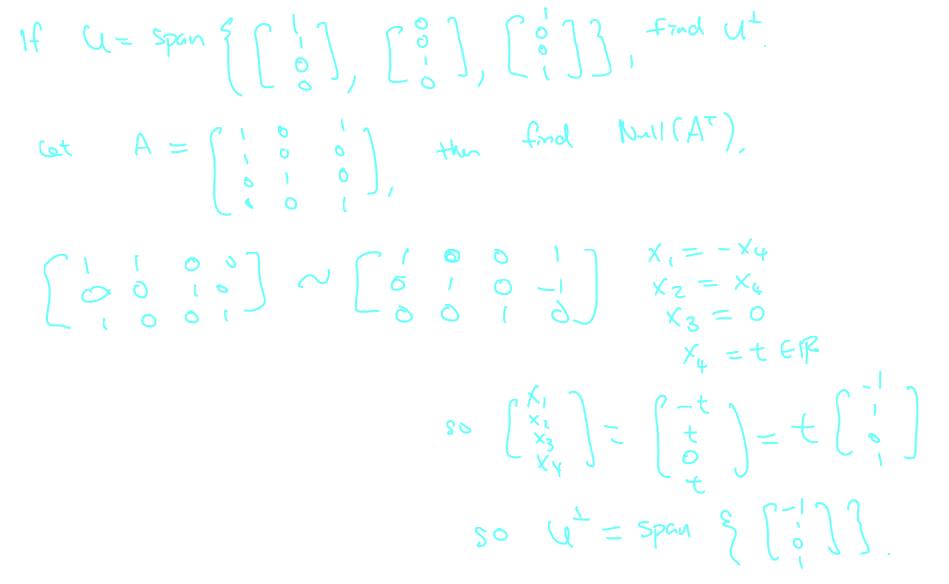 If U = span { [1 1 0 0], [0 0 1 0], [1 0 0 1] }, find U⊥.
Let A = [1 0 1; 1 0 0; 0 1 0; 0 0 1], then find Null(Aᵀ).
[1 1 0 0; 0 0 1 0; 1 0 0 1] ~ [1 0 0 1; 0 1 0 -1; 0 0 1 0]
x₁ = -x₄
x₂ = x₄
x₃ = 0
x₄ = t ∈ ℝ
so [x₁ x₂ x₃ x₄] = [-t t 0 t] = t [-1 1 0 1]
so U⊥ = span { [-1 1 0 1] }.